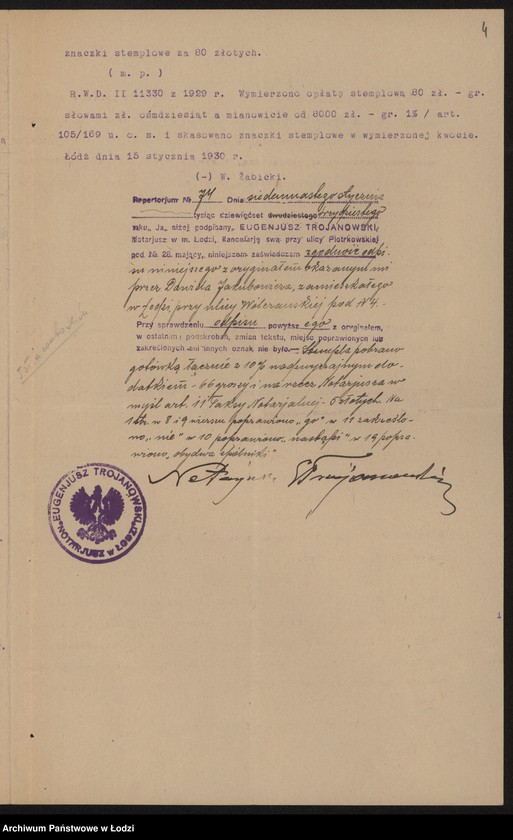 4
znaczki stemplowe za 80 złotych.
( m. p. )
R.W.D. II 11330 z 1929 r. Wymierzono opłatę stemplową 80 zł. - gr.
słowami zł. ośmdziesiąt a mianowicie od 8000 zł. - gr. 1% / art.
105/169 u. o. s. i skasowano znaczki stemplowe w wymierzonej kwocie.
Łódź dnia 15 stycznia 1930 r.
(-) W. Żabicki.
Repertorjum № 74 Dnia siedemnastego stycznia
tysiąc dziewięćset dwudziestego trzydziestego
roku, Ja, niżej podpisany, EUGENJUSZ TROJANOWSKI,
Notarjusz w m. Łodzi, Kancelarję swą przy ulicy Piotrkowskiej
pod № 28. mający, niniejszem zaświadczam zgodność odpi-
su niniejszego z oryginałem okazanym mi
przez Dawida Jakubowicza, zamieszkałego
w Łodzi przy ulicy Wólczańskiej pod № 4.
Przy sprawdzeniu odpisu powyższego z oryginałem,
w ostatnim podskrobań, zmian tekstu, miejsc poprawionych lub
zakreślonych ani innych oznak nie było.— Stempla pobrano
gotówką łącznie z 10% nadzwyczajnym do-
datkiem - 66 groszy i na rzecz Notarjusza w
myśl art. 11 Taksy Notarjalnej - 5 złotych. Na
1 str. w 8 i 9 wierszu poprawiono „go" w 11 zakreślo-
no „nie" w 10 poprawiono „nastąpi" w 19 popra-
wiono „obydwa spólniki"
Notarjusz: ETrojanowski
EUGENJUSZ TROJANOWSKI
NOTARJUSZ w ŁODZI
Archiwum Państwowe w Łodzi